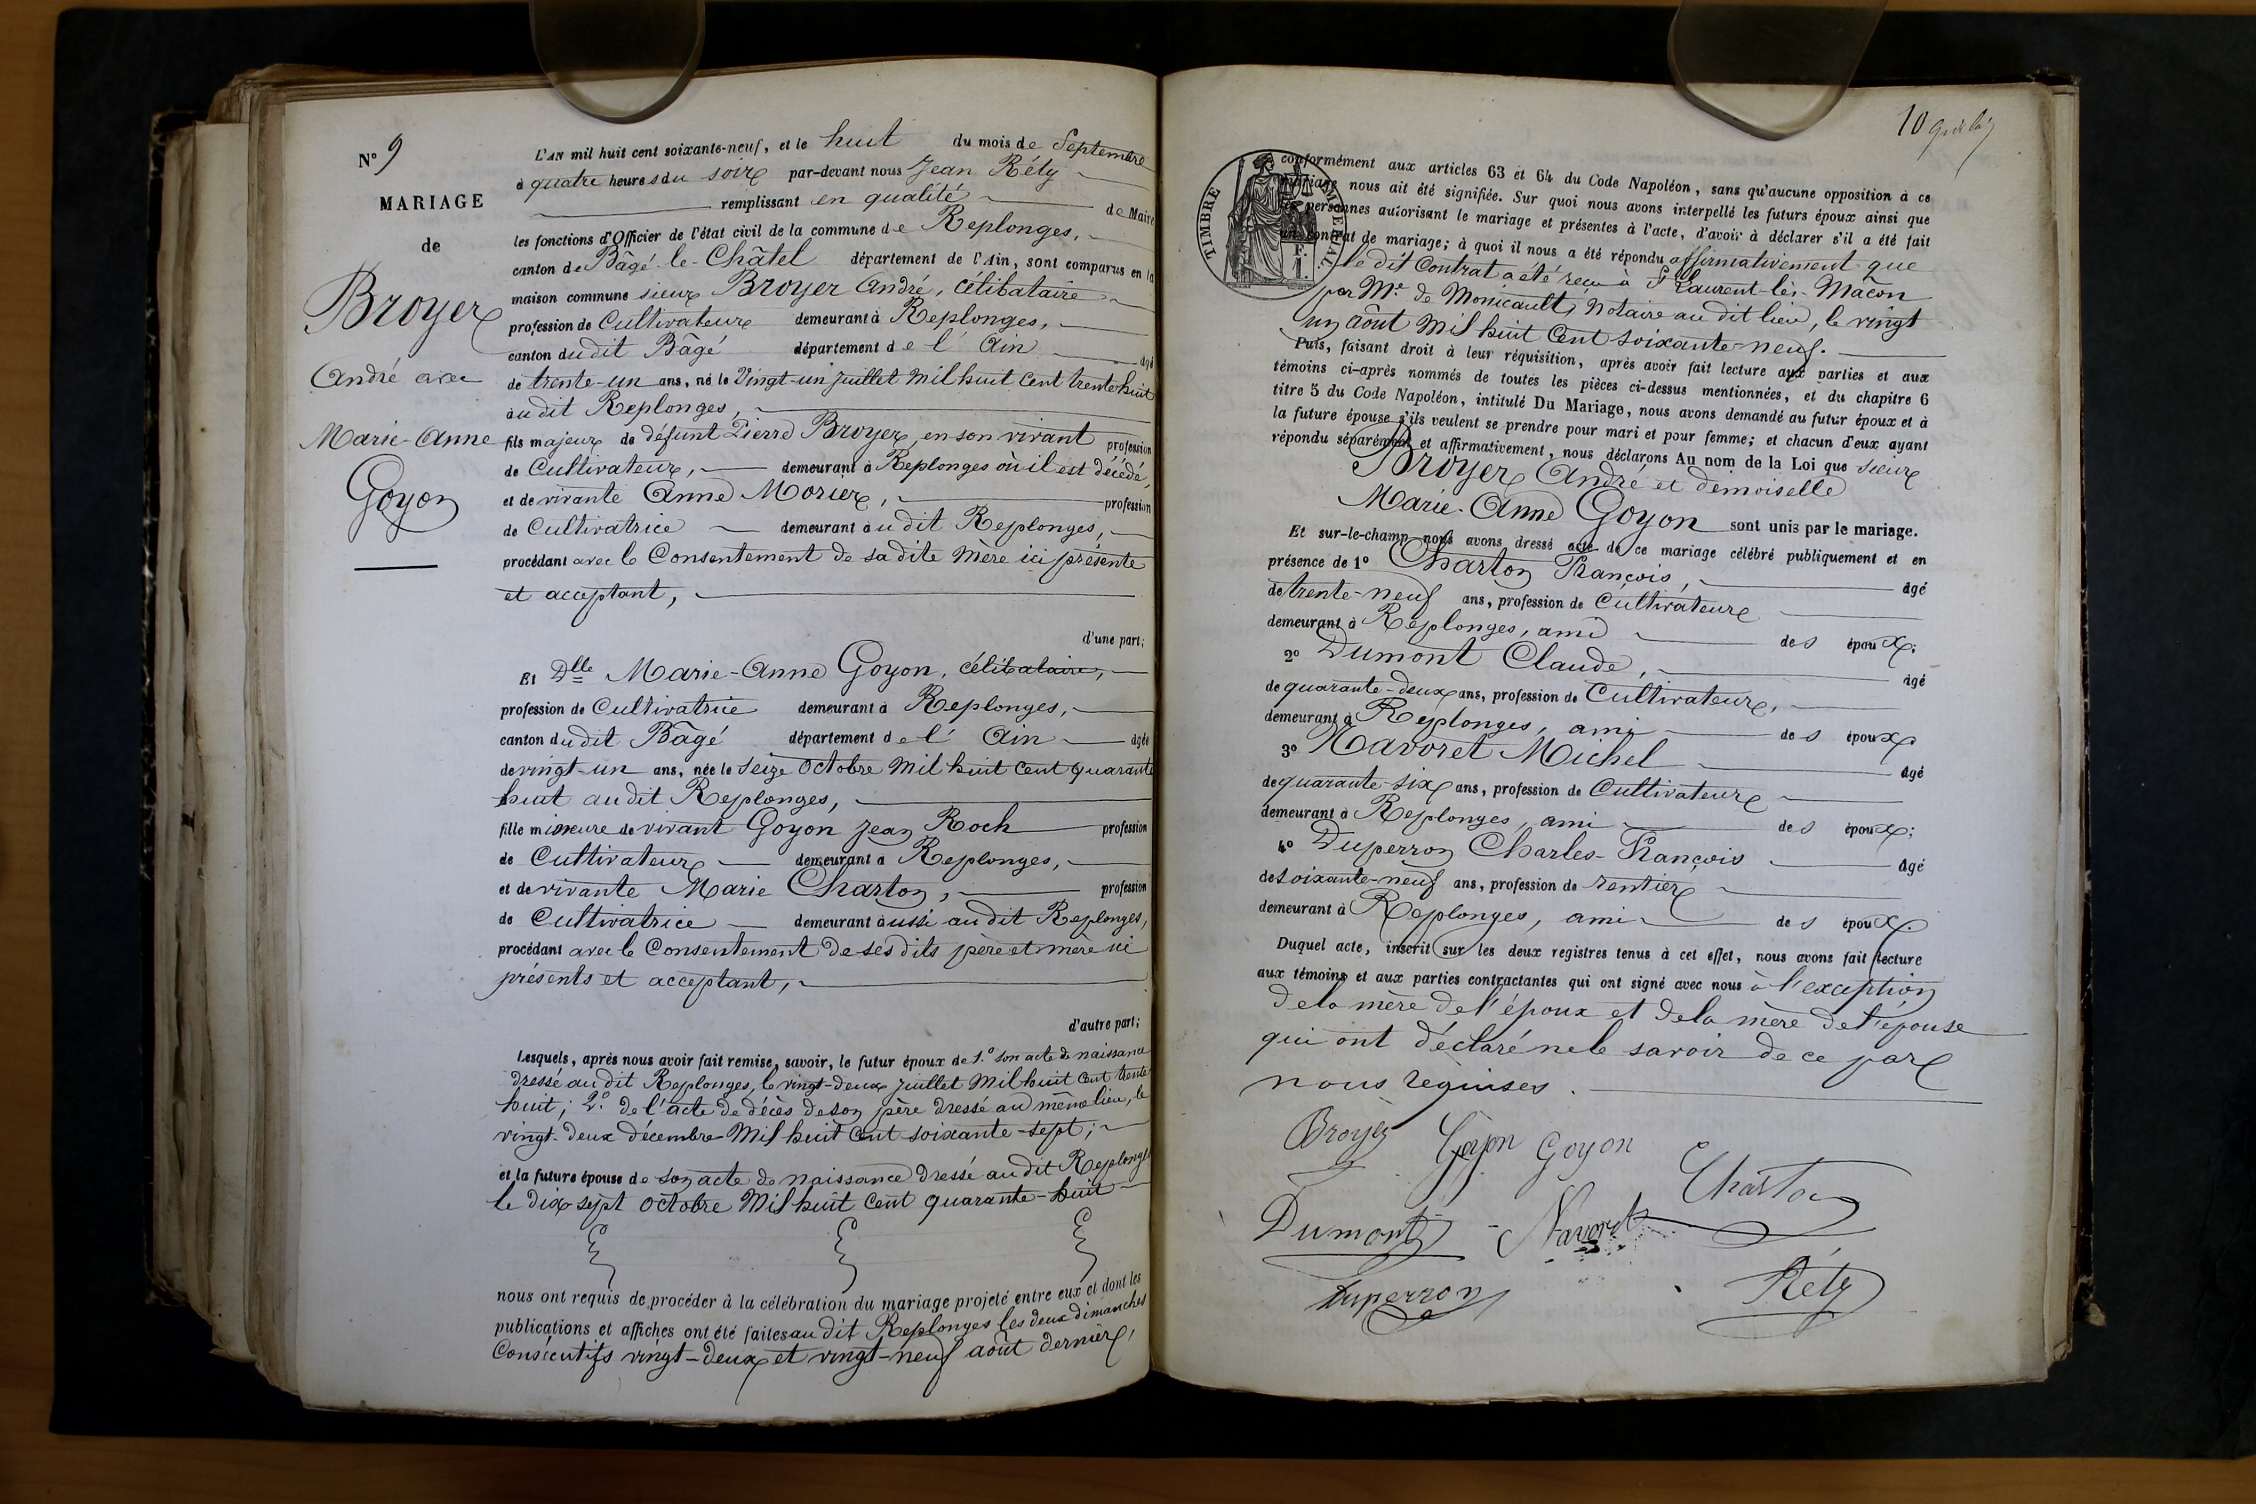 N° 9
MARIAGE
de
Broyer
André avec
Marie-Anne
Goyon
L'AN mil huit cent soixante-neuf, et le huit du mois de Septembre
à quatre heures du soir par-devant nous Jean Réty
remplissant en qualité de Maire
les fonctions d'Officier de l'état civil de la commune de Replonges,
canton de Bâgé-le-Châtel département de l'Ain, sont comparus en la
maison commune sieur Broyer André, célibataire
profession de Cultivateur demeurant à Replonges,
canton du dit Bâgé département de l'Ain âgé
de trente-un ans, né le Vingt-un juillet Mil huit cent trente huit
au dit Replonges,
fils majeur de défunt Pierre Broyer, en son vivant profession
de Cultivateur, demeurant à Replonges où il est décédé,
et de vivante Anne Morier, profession
de Cultivatrice demeurant au dit Replonges,
procédant avec le Consentement de sa dite Mère ici présente
et acceptant,
d'une part;
Et Dlle Marie-Anne Goyon, célibataire,
profession de Cultivatrice demeurant à Replonges,
canton du dit Bâgé département de l'Ain âgée
de vingt-un ans, née le seize Octobre Mil huit cent quarante
huit au dit Replonges,
fille mineure de vivant Goyon Jean Roch profession
de Cultivateur demeurant à Replonges,
et de vivante Marie Charton, profession
de Cultivatrice demeurant aussi au dit Replonges,
procédant avec le Consentement de ses dits père et mère ici
présents et acceptant,
d'autre part;
Lesquels, après nous avoir fait remise, savoir, le futur époux de 1.° son acte de naissance
dressé au dit Replonges, le vingt-deux juillet Mil huit cent trente
huit; 2.° de l'acte de décès de son père dressé au même lieu, le
vingt-deux décembre Mil huit cent soixante-sept;
et la future épouse de son acte de naissance dressé au dit Replonges
le dix sept octobre Mil huit cent quarante-huit
nous ont requis de procéder à la célébration du mariage projeté entre eux et dont les
publications et affiches ont été faites au dit Replonges les deux dimanches
Consécutifs vingt-deux et vingt-neuf août dernier,
10
TIMBRE IMPÉRIAL
1 F.
conformément aux articles 63 et 64 du Code Napoléon, sans qu'aucune opposition à ce
mariage nous ait été signifiée. Sur quoi nous avons interpellé les futurs époux ainsi que
les personnes autorisant le mariage et présentes à l'acte, d'avoir à déclarer s'il a été fait
un contrat de mariage; à quoi il nous a été répondu affirmativement que
le dit Contrat a été reçu à St Laurent-lès-Mâcon
par Me. de Monicault, Notaire au dit lieu, le vingt
un août Mil huit Cent soixante-neuf.
Puis, faisant droit à leur réquisition, après avoir fait lecture aux parties et aux
témoins ci-après nommés de toutes les pièces ci-dessus mentionnées, et du chapitre 6
titre 5 du Code Napoléon, intitulé Du Mariage, nous avons demandé au futur époux et à
la future épouse s'ils veulent se prendre pour mari et pour femme; et chacun d'eux ayant
répondu séparément et affirmativement, nous déclarons Au nom de la Loi que sieur
Broyer André et demoiselle
Marie-Anne Goyon sont unis par le mariage.
Et sur-le-champ nous avons dressé acte de ce mariage célébré publiquement et en
présence de 1° Charton François, âgé
de trente-neuf ans, profession de Cultivateur
demeurant à Replonges, ami des époux;
2° Dumont Claude, âgé
de quarante-deux ans, profession de Cultivateur,
demeurant à Replonges, ami des époux
3° Navoret Michel âgé
de quarante-six ans, profession de Cultivateur
demeurant à Replonges, ami des époux;
4° Duperron Charles-François âgé
de soixante-neuf ans, profession de rentier
demeurant à Replonges, ami des époux.
Duquel acte, inscrit sur les deux registres tenus à cet effet, nous avons fait lecture
aux témoins et aux parties contractantes qui ont signé avec nous à l'exception
de la mère de l'époux et de la mère de l'épouse
qui ont déclaré ne le savoir de ce par
nous requises.
Broyer Goyon Goyon
Charton
Dumont Navoret
Duperron Réty